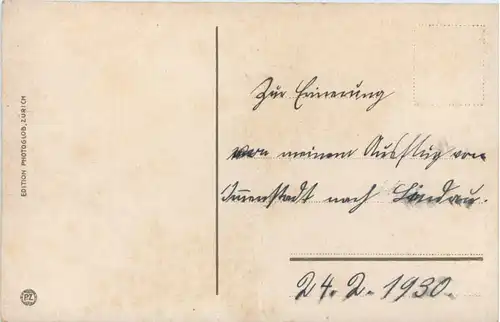 EDITION PHOTOGLOB, ZÜRICH
Zur Erinerung
von meinem Ausflug von
Immenstadt nach Lindau.
24.2.1930.
PZ